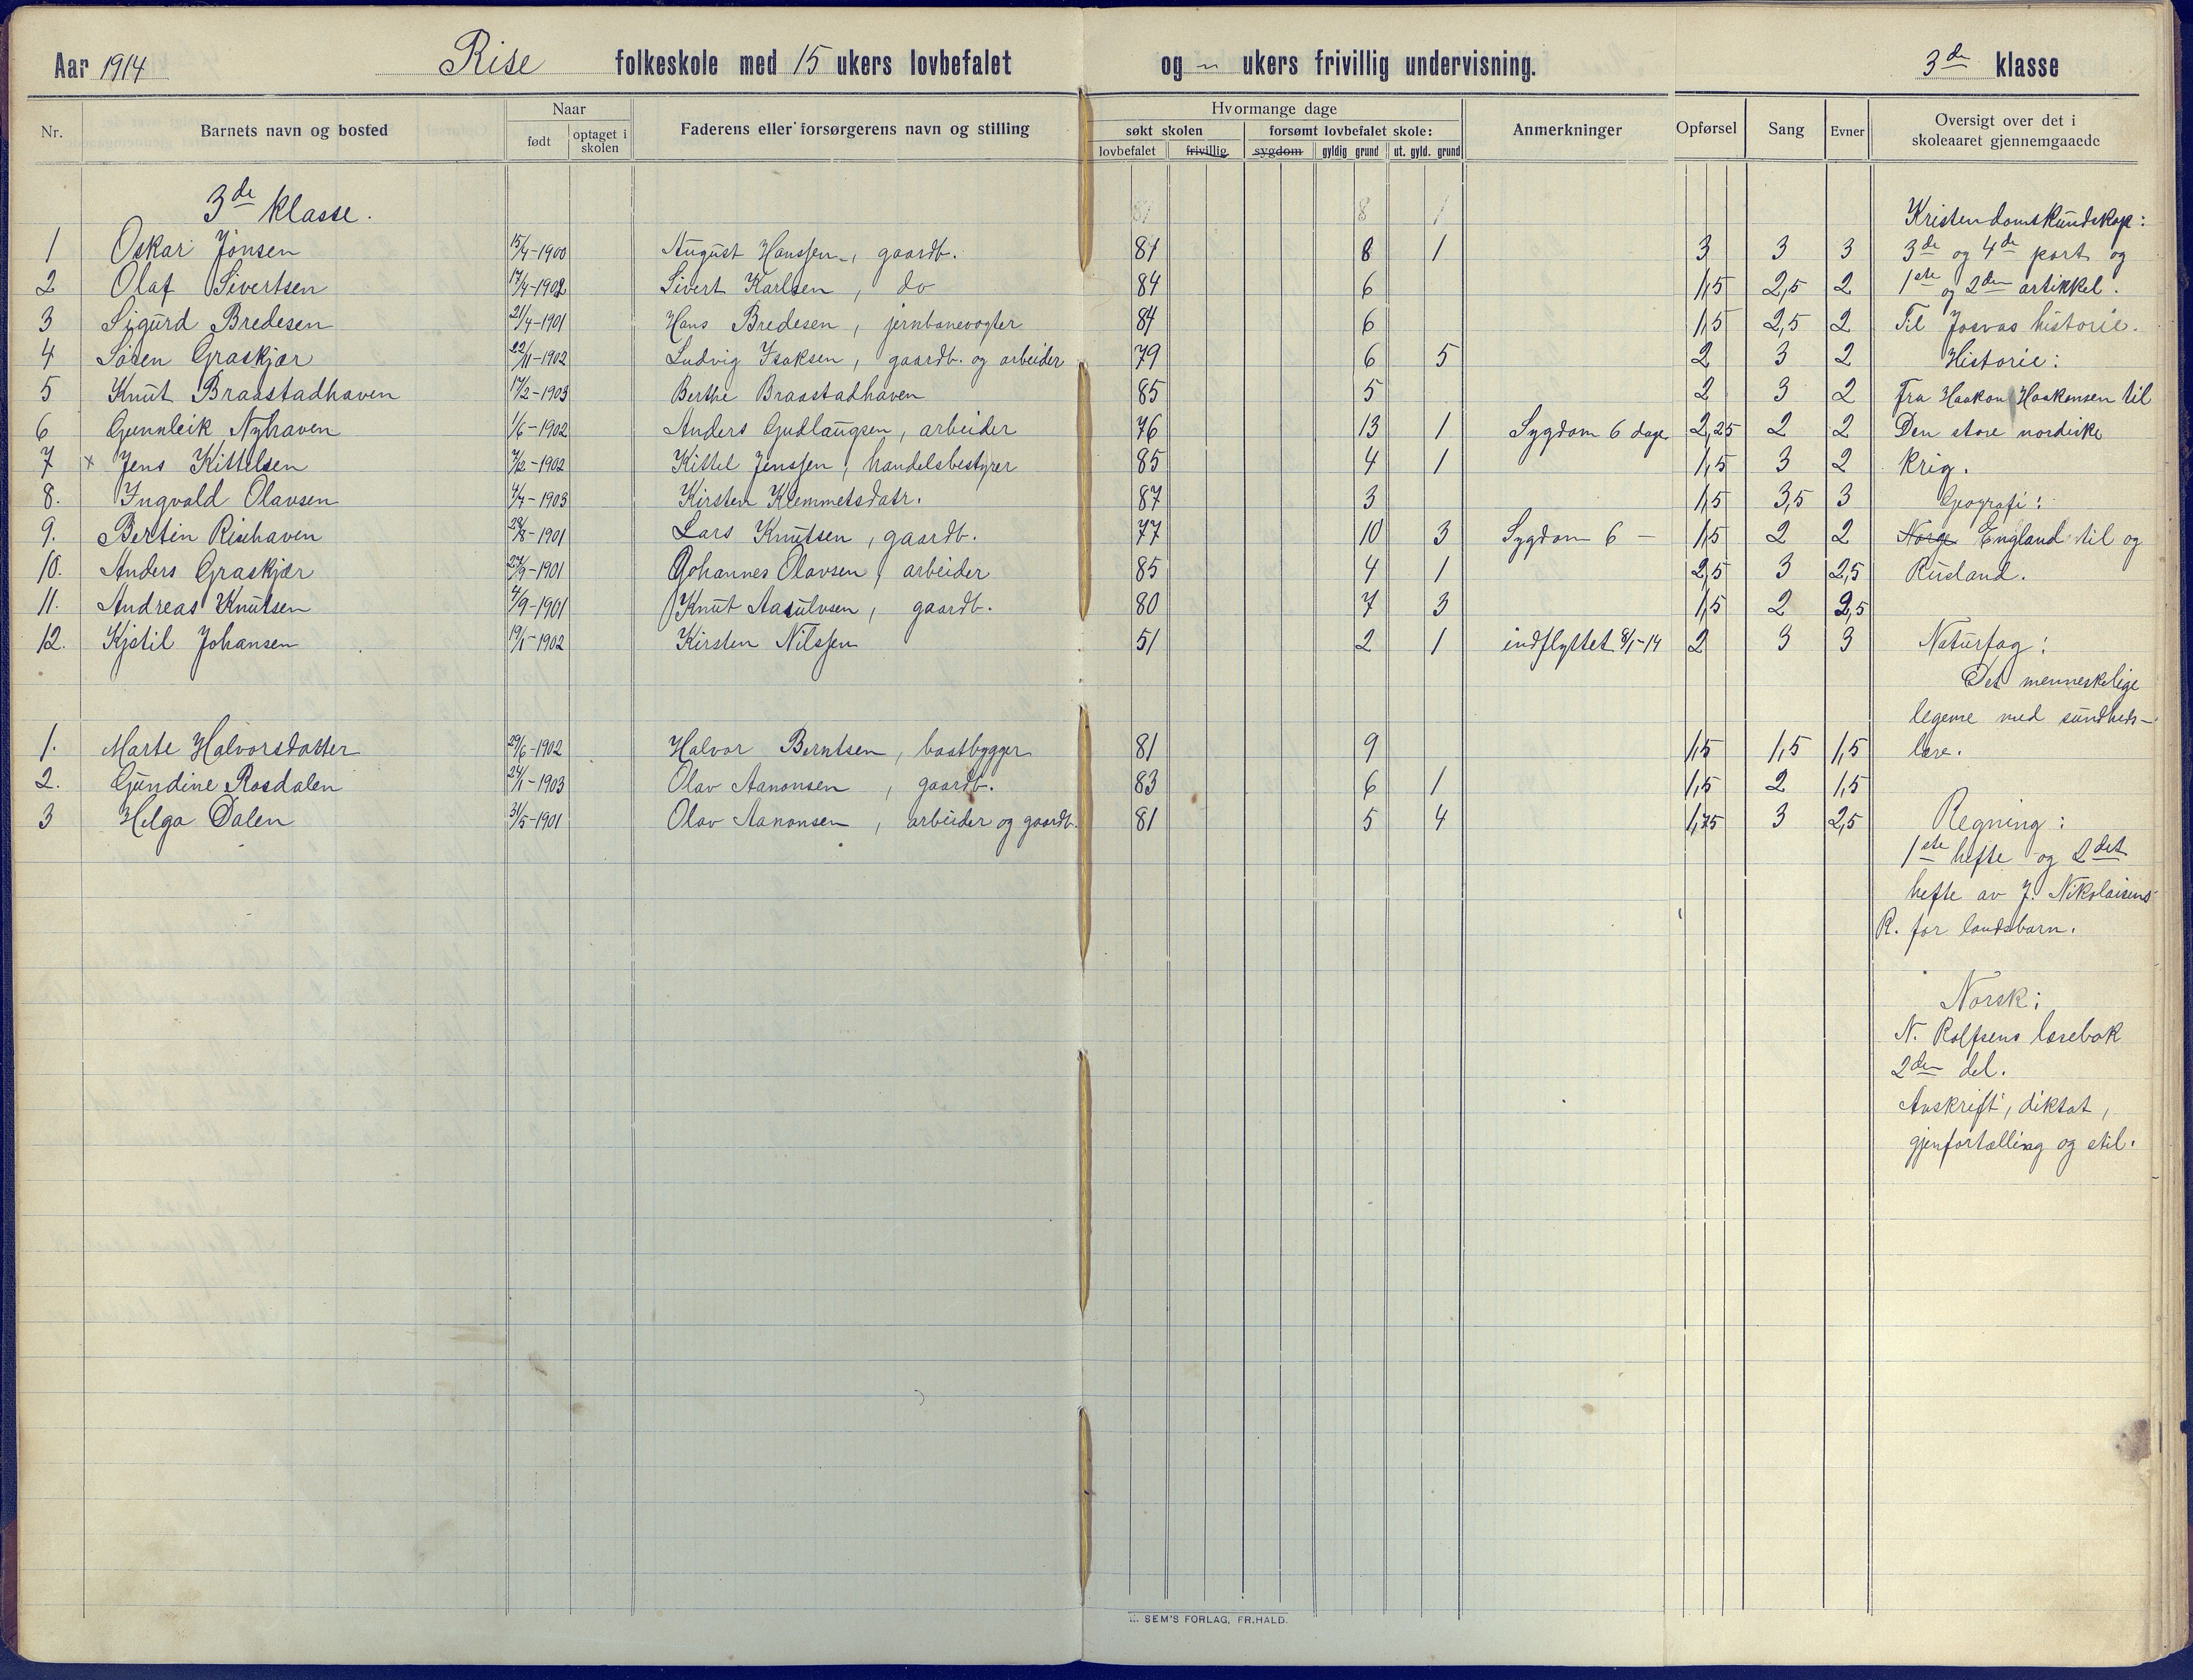 Aar 1914 Rise folkeskole med 15 ukers lovbefalet og -"- ukers frivillig undervisning. 3de klasse
Nr. Barnets navn og bosted Naar født optaget i skolen Faderens eller forsørgerens navn og stilling Hvormange dage søkt skolen lovbefalet frivillig forsømt lovbefalet skole: sygdom gyldig grund ut. gyld. grund Anmerkninger Opførsel Sang Evner Oversigt over det i skoleaaret gjennemgaaede
3de klasse. 81 8 1 Kristendomskundskap:
1 Oskar Jonsen 15/4-1900 August Hanssen, gaardb. 81 8 1 3 3 3 3de og 4de part og
2 Olaf Sivertsen 17/4-1902 Sivert Karlsen, do 84 6 1,5 2,5 2 1ste og 2den artikkel.
3 Sigurd Bredesen 21/4-1901 Hans Bredesen, jernbanevogter 84 6 1,5 2,5 2 Til Josvas historie.
4 Søren Graskjær 22/11-1902 Ludvig Isaksen, gaardb. og arbeider 79 6 5 2 3 2 Historie:
5 Knut Braastadhaven 17/2-1903 Berthe Braastadhaven 85 5 2 3 2 Fra Haakon Haakonsen til
6 Gunnleik Nyhaven 1/6-1902 Anders Gudlaugsen, arbeider 76 13 1 Sygdom 6 dage 2,25 2 2 Den store nordiske
7 x Jens Kittelsen 7/2-1902 Kittel Jenssen, handelsbestyrer 85 4 1 1,5 3 2 krig.
8. Ingvald Olavsen 4/4-1903 Kirsten Klemmetsdatr. 87 3 1,5 3,5 3 Geografi:
9. Bertin Risehaven 28/8-1901 Lars Knutsen, gaardb. 77 10 3 Sygdom 6 — 1,5 2 2 Norge England til og
10. Anders Graskjær 27/9-1901 Johannes Olavsen, arbeider 85 4 1 2,5 3 2,5 Rusland.
11. Andreas Knutsen 4/9-1901 Knut Aasulvsen, gaardb. 80 7 3 1,5 2 2,5
12. Kjstil Johansen 19/1-1902 Kirsten Nilssen 51 2 1 indflyttet 8/1-14 2 3 3 Naturfag:
Det menneskelige
legeme med sundheds-
1. Marte Halvorsdatter 29/6-1902 Halvor Berntsen, baatbygger 81 9 1,5 1,5 1,5 lære.
2. Gundine Rosdalen 24/1-1903 Olav Aanonsen, gaardb. 83 6 1 1,5 2 1,5
3 Helga Dalen 31/5-1901 Olav Aanonsen, arbeider og gaardb. 81 5 4 1,75 3 2,5 Regning:
1ste hefte og 2det
hefte av J. Nikolaisens
R. for landsbarn.
Norsk:
N. Rolfsens læsebok
2den del.
Avskrift, diktat,
gjenfortælling og stil.
SEM'S FORLAG, FR.HALD.